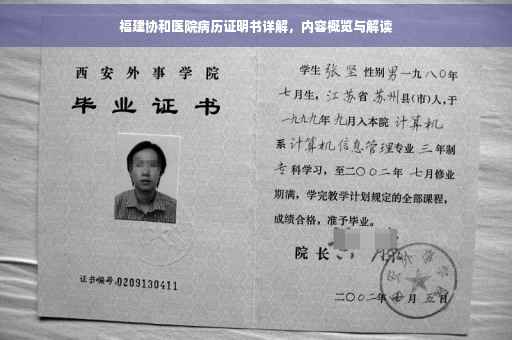 福建协和医院病历证明书详解，内容概览与解读
西安外事学院
毕业证书
证书编号:0209130411
学生 张坚 性别男一九八〇年
七月生，江苏省苏州县(市)人,于
一九九九年九月入本院 计算机
系计算机信息管理专业 三 年制
专科学习，至二〇〇二年 七月修业
期满，学完教学计划规定的全部课程，
成绩合格，准予毕业。
院长
二〇〇二年 月五日